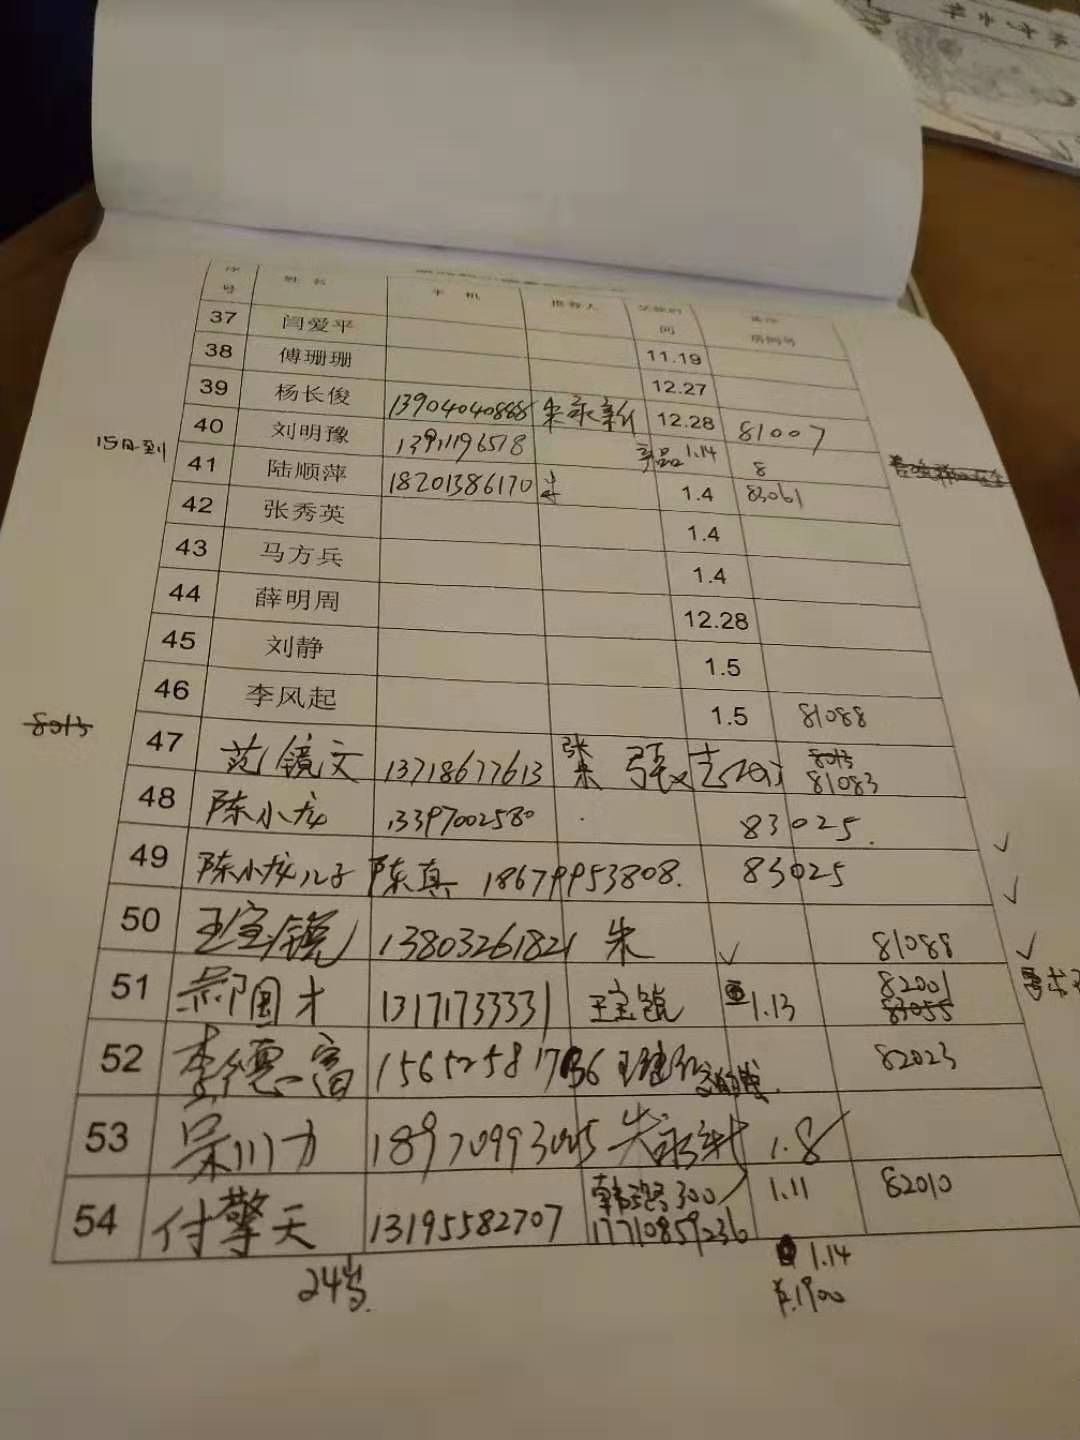 序号 姓名 手机 推荐人 交款时间 房间号
37 闫爱平
38 傅珊珊 11.19
39 杨长俊 13904040888 朱永新 12.27
40 刘明豫 13911196518 12.28 81007
15日到 41 陆顺萍 18201386170 朱 1.14 8
42 张秀英 1.4 83061
43 马方兵 1.4
44 薛明周 1.4
45 刘静 12.28
46 李风起 1.5
8013 47 范镜文 13718677613 张 朱 1.5 81088
8013
81083
48 陈小龙 13397002580 83025.
49 陈小龙儿子 陈真 18679953808. 83025
50 王宝锐 13803261821 朱 81088
51 郝国才 13171733331 王宝锐 1.13 82001
83055
52 李德富 82023
53 吴川力 朱永新 1.8
54 付擎天 13195582707 300 1.11 82010
17710859236
1.14
1900